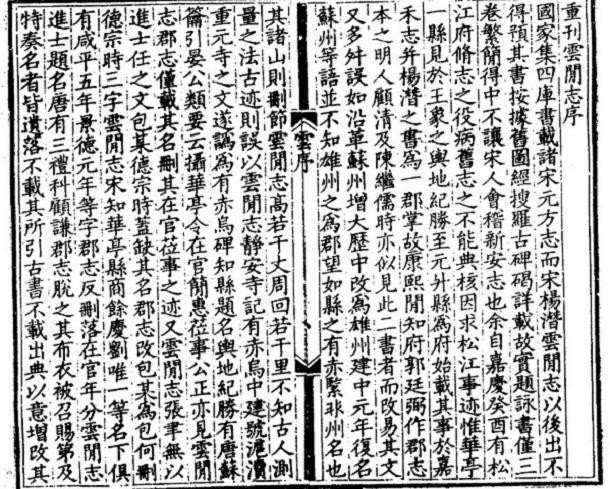 重刊雲閒志序
國家集四庫書載諸宋元方志而宋楊潛雲閒志以後出不
得預其書按據舊圖經搜羅古碑碣詳載故實題詠書僅三
卷繁簡得中不讓宋人會稽新安志也余自嘉慶癸酉有松
江府脩志之役病舊志之不能典核因求松江事迹惟華亭
一縣見於王象之輿地紀勝至元升縣爲府始載其事於嘉
禾志并楊潛之書爲一郡掌故康熙閒知府郭廷弼作郡志
本之明人顧清及陳繼儒時亦似見此二書者而改易其文
又多舛誤如沿革蘇州增大歷中改爲雄州建中元年復名
蘇州等語並不知雄州之爲郡望如縣之有赤緊非州名也
雲序
其諸山則刪節雲閒志高若干丈周回若干里不知古人測
量之法古迹則誤以雲閒志靜安寺記有赤烏中建號滬瀆
重元寺之文遂譌爲有赤烏碑知縣題名輿地紀勝有唐蘇
篇引晏公類要云攝華亭令在官簡惠莅事公正亦見雲閒
志郡志僅載其名刪其在官莅事之迹又雲閒志張聿無以
進士任之文包某德宗時蓋缺其名郡志改包某爲包何刪
德宗時三字雲閒志宋知華亭縣商餘慶劉唯一等名下俱
有咸平五年景德元年等字郡志反刪落在官年分雲閒志
進士題名唐有三禮科顧謙郡志脫之其布衣被召賜第及
特奏名者皆遺落不載其所引古書不載出典以意增改其